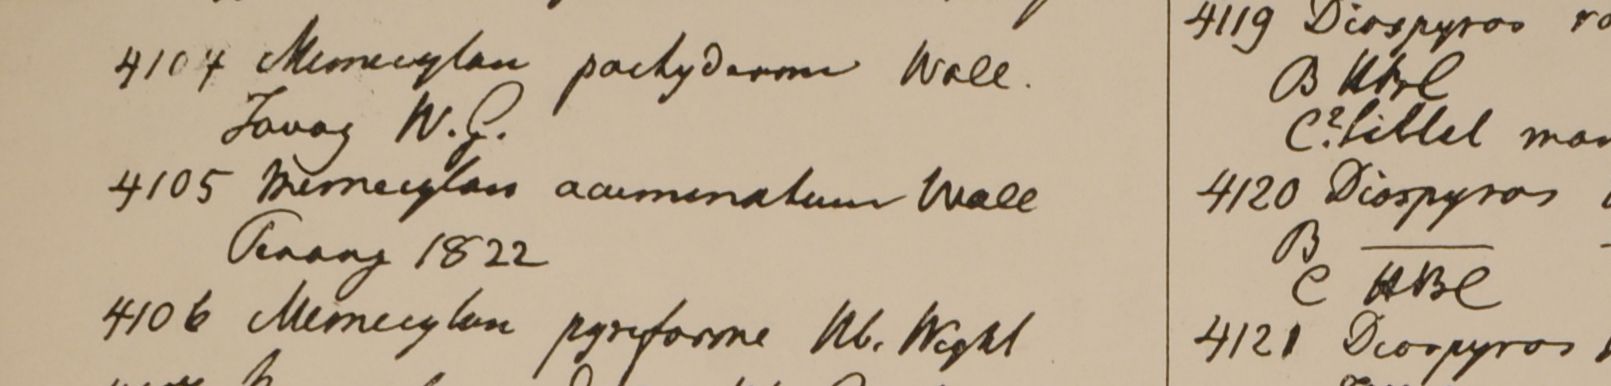 4104 Memecylon pachyderma Wall.
Tavoy W.G.
4105 Memecylon acuminatum Wall
Penang 1822
4106 Memecylon pyriforme Hb. Wight
4119 Diospyros
B HBC
C?
4120 Diospyros
B
C HBC
4121 Diospyros